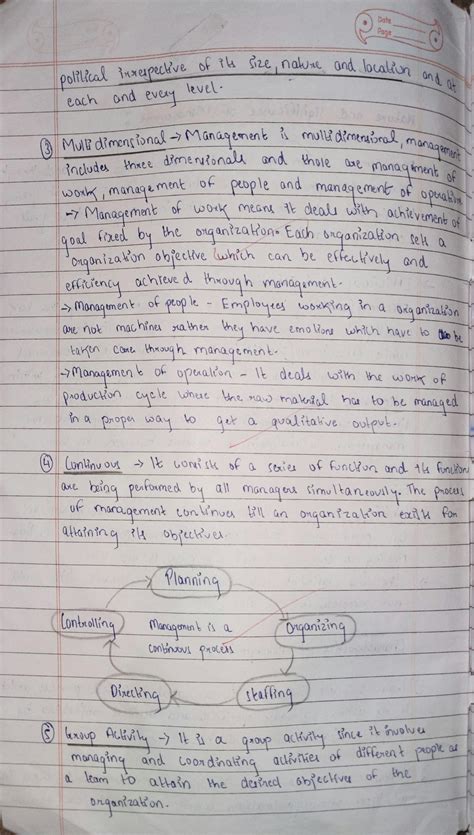 Date
Page
political irrespective of its size, nature and location and at
each and every level.
③ Multidimensional → Management is multidimensional, management
includes three dimensionals and those are management of
work, management of people and management of operation
→ Management of work means it deals with achievement of
goal fixed by the organization. Each organization sets a
organization objective which can be effectively and
efficiency achieved through management.
→ Management of people - Employees working in a organization
are not machines rather they have emotions which have to be
taken care through management.
→ Management of operation - It deals with the work of
production cycle where the raw material has to be managed
in a proper way to get a qualitative output.
④ Continuous → It consists of a series of function and its function
are being performed by all managers simultaneously. The process
of management continues till an organization exists for
attaining its objectives.
Planning
Controlling
Management is a
continuous process
Organizing
Directing
Staffing
⑤ Group Activity → It is a group activity since it involves
managing and coordinating activities of different people as
a team to attain the desired objectives of the
organization.